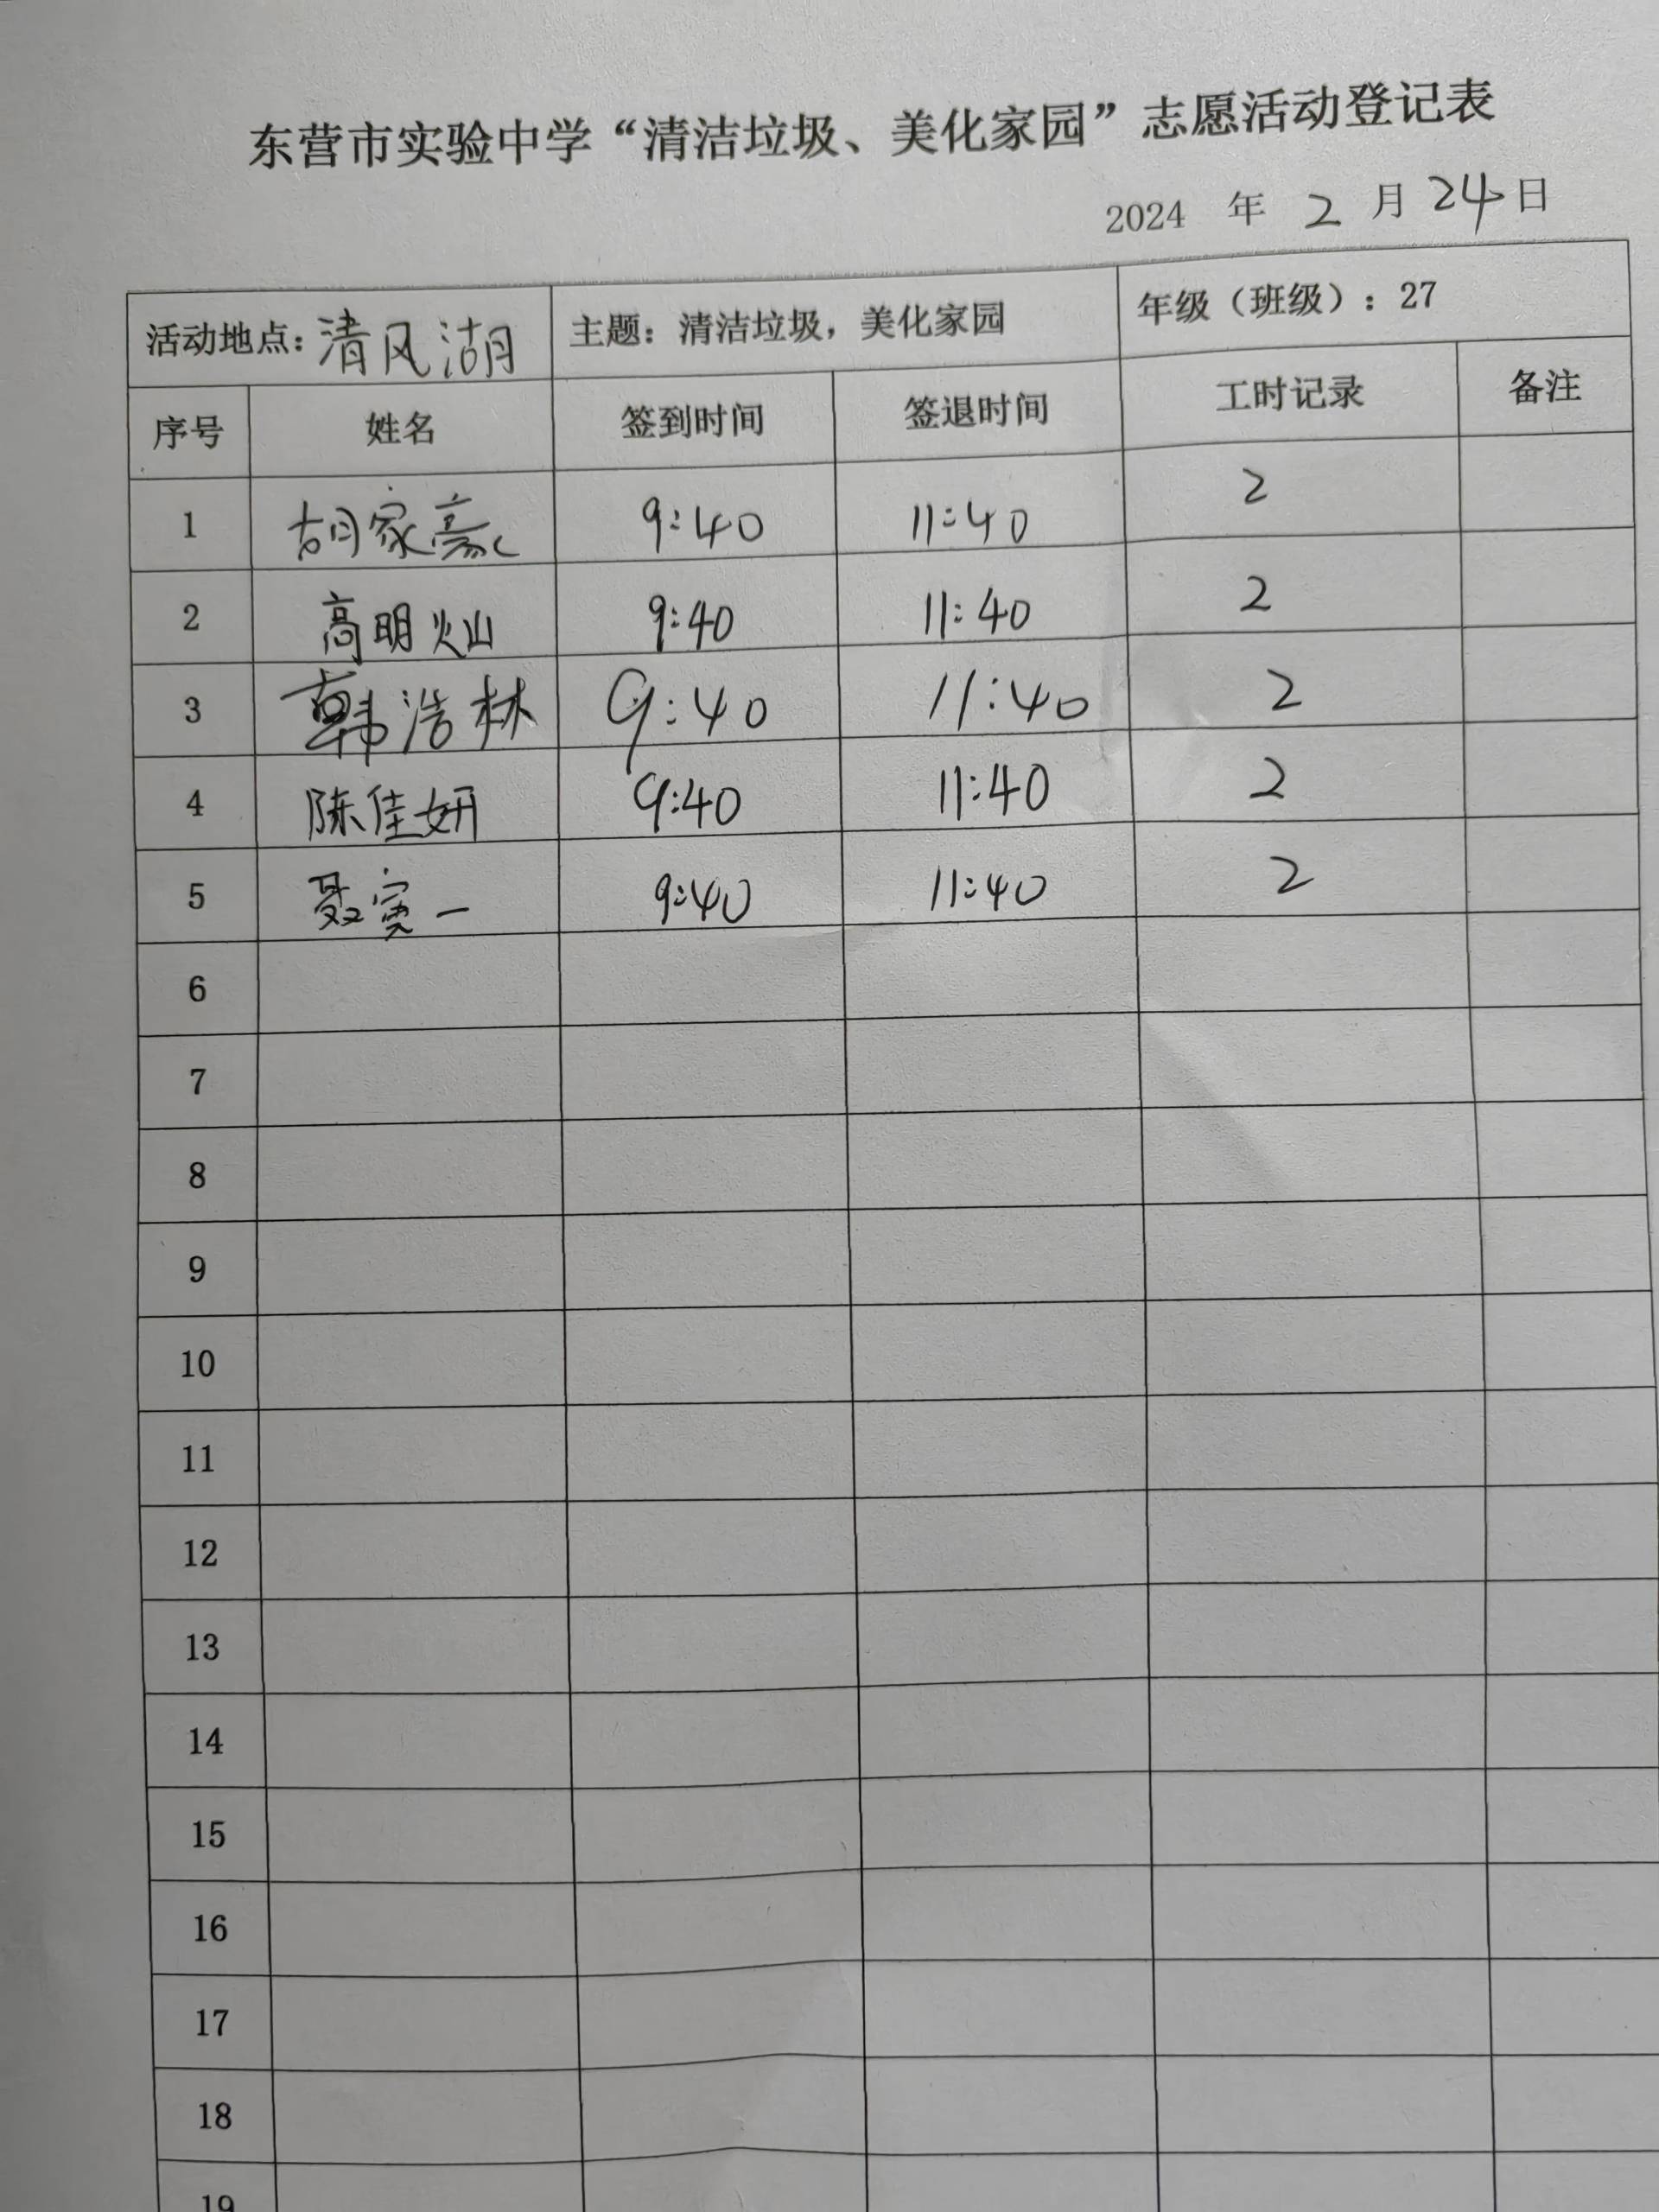 东营市实验中学“清洁垃圾、美化家园”志愿活动登记表
2024 年 2 月 24 日
活动地点：清风湖 主题：清洁垃圾，美化家园 年级（班级）：27
序号 姓名 签到时间 签退时间 工时记录 备注
1 胡家豪 9:40 11:40 2
2 高明灿 9:40 11:40 2
3 韩浩林 9:40 11:40 2
4 陈佳妍 9:40 11:40 2
5 聂寅一 9:40 11:40 2
6
7
8
9
10
11
12
13
14
15
16
17
18
19